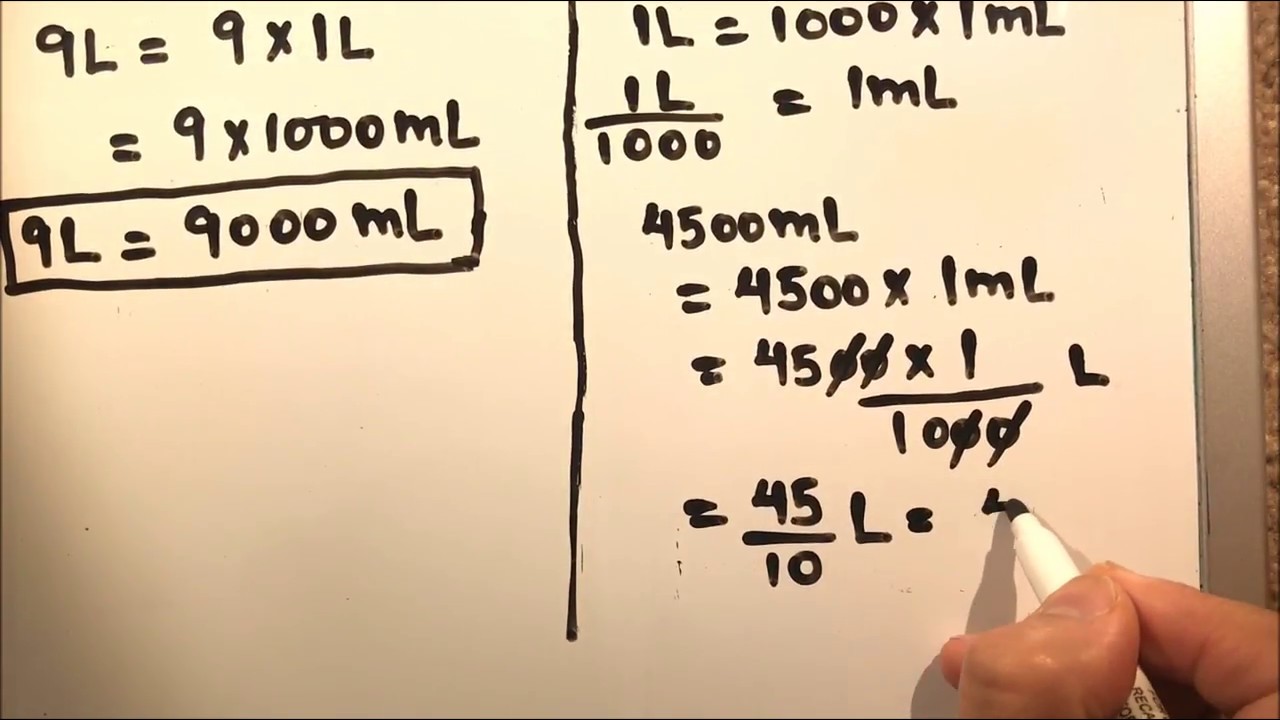 9L = 9 x 1L
= 9 x 1000 mL
9L = 9000 mL
1L = 1000 x 1 mL
1 L
1000
= 1mL
4500mL
= 4500 x 1mL
= 4500 x 1 L
1000
= 45 L = 4
10
RECA